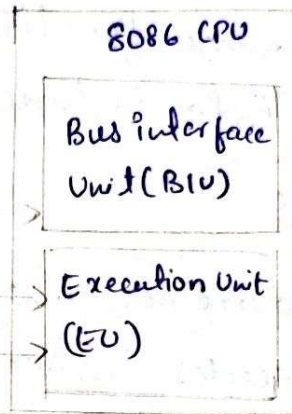 8086 CPU
Bus interface
Unit (BIU)
Execution Unit
(EU)